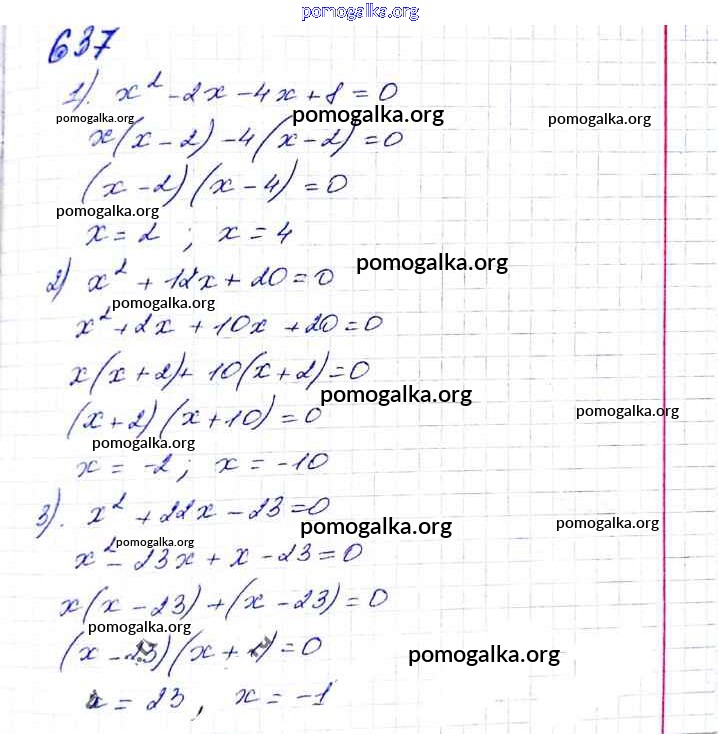 pomogalka.org
637
1). x² - 2x - 4x + 8 = 0
pomogalka.org
pomogalka.org
pomogalka.org
x(x - 2) - 4(x - 2) = 0
(x - 2)(x - 4) = 0
pomogalka.org
x = 2 ; x = 4
pomogalka.org
2) x² + 12x + 20 = 0
pomogalka.org
x² + 2x + 10x + 20 = 0
x(x + 2) + 10(x + 2) = 0
pomogalka.org
pomogalka.org
(x + 2)(x + 10) = 0
pomogalka.org
x = -2 ; x = -10
3). x² + 22x - 23 = 0
pomogalka.org
pomogalka.org
pomogalka.org
x² - 23x + x - 23 = 0
x(x - 23) + (x - 23) = 0
pomogalka.org
(x - 23)(x + 1) = 0
pomogalka.org
x = 23, x = -1